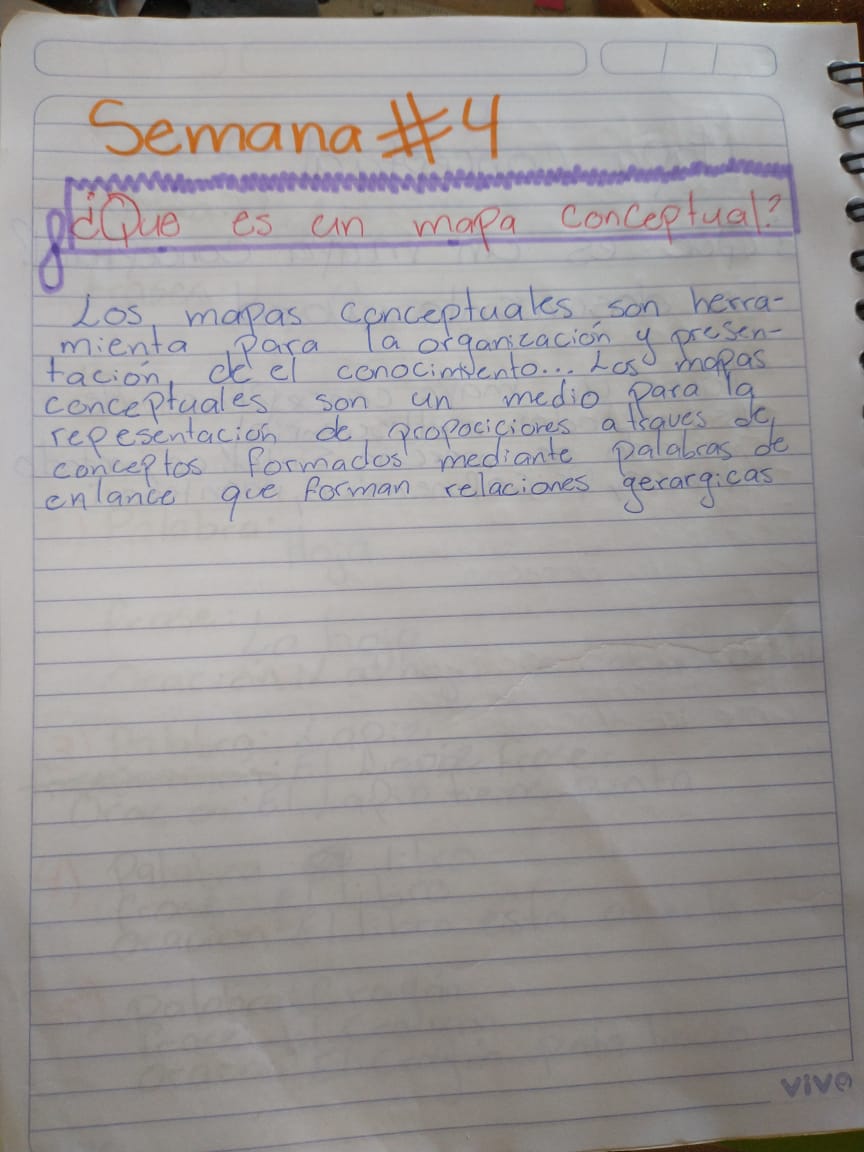 Semana #4
¿Que es un mapa conceptual?
Los mapas conceptuales son herra-
mienta para la organización y presen-
tación de el conocimiento... Los mapas
conceptuales son un medio para la
repesentación de propociciores a traves de
conceptos formados mediante palabras de
enlance que forman relaciones gerargicas
vivo